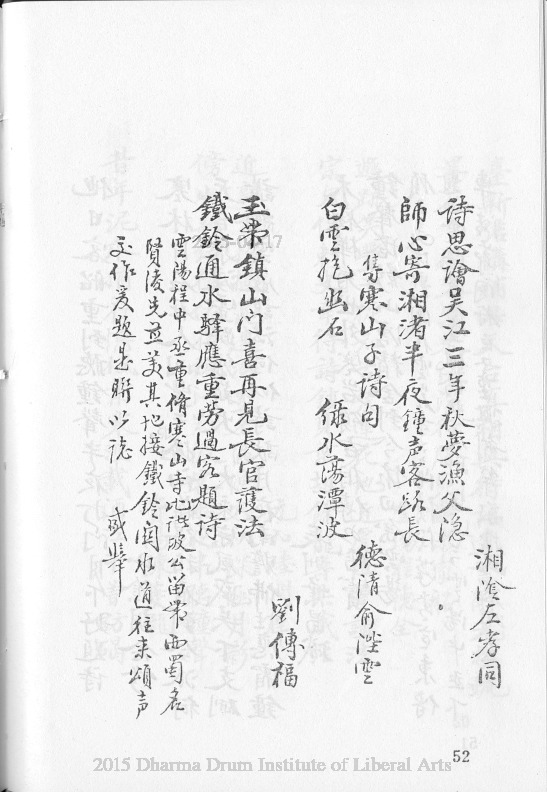 湘陰左孝同
詩思繪吳江三年秋夢漁父隐
師心寄湘渚半夜鐘声客路長
集寒山子詩句
德清俞陛雲
白雲抱幽石 綠水蕩潭波
劉傳福
玉帶鎮山门喜再見長官護法
鐵鈴通水驛應重勞過客題詩
雲陽程中丞重脩寒山寺比踪坡公留帶西蜀名
賢後先並美其地接鐵鈴関水道往来頌声
交作爰題是聯以誌 盛舉
52
2015 Dharma Drum Institute of Liberal Arts